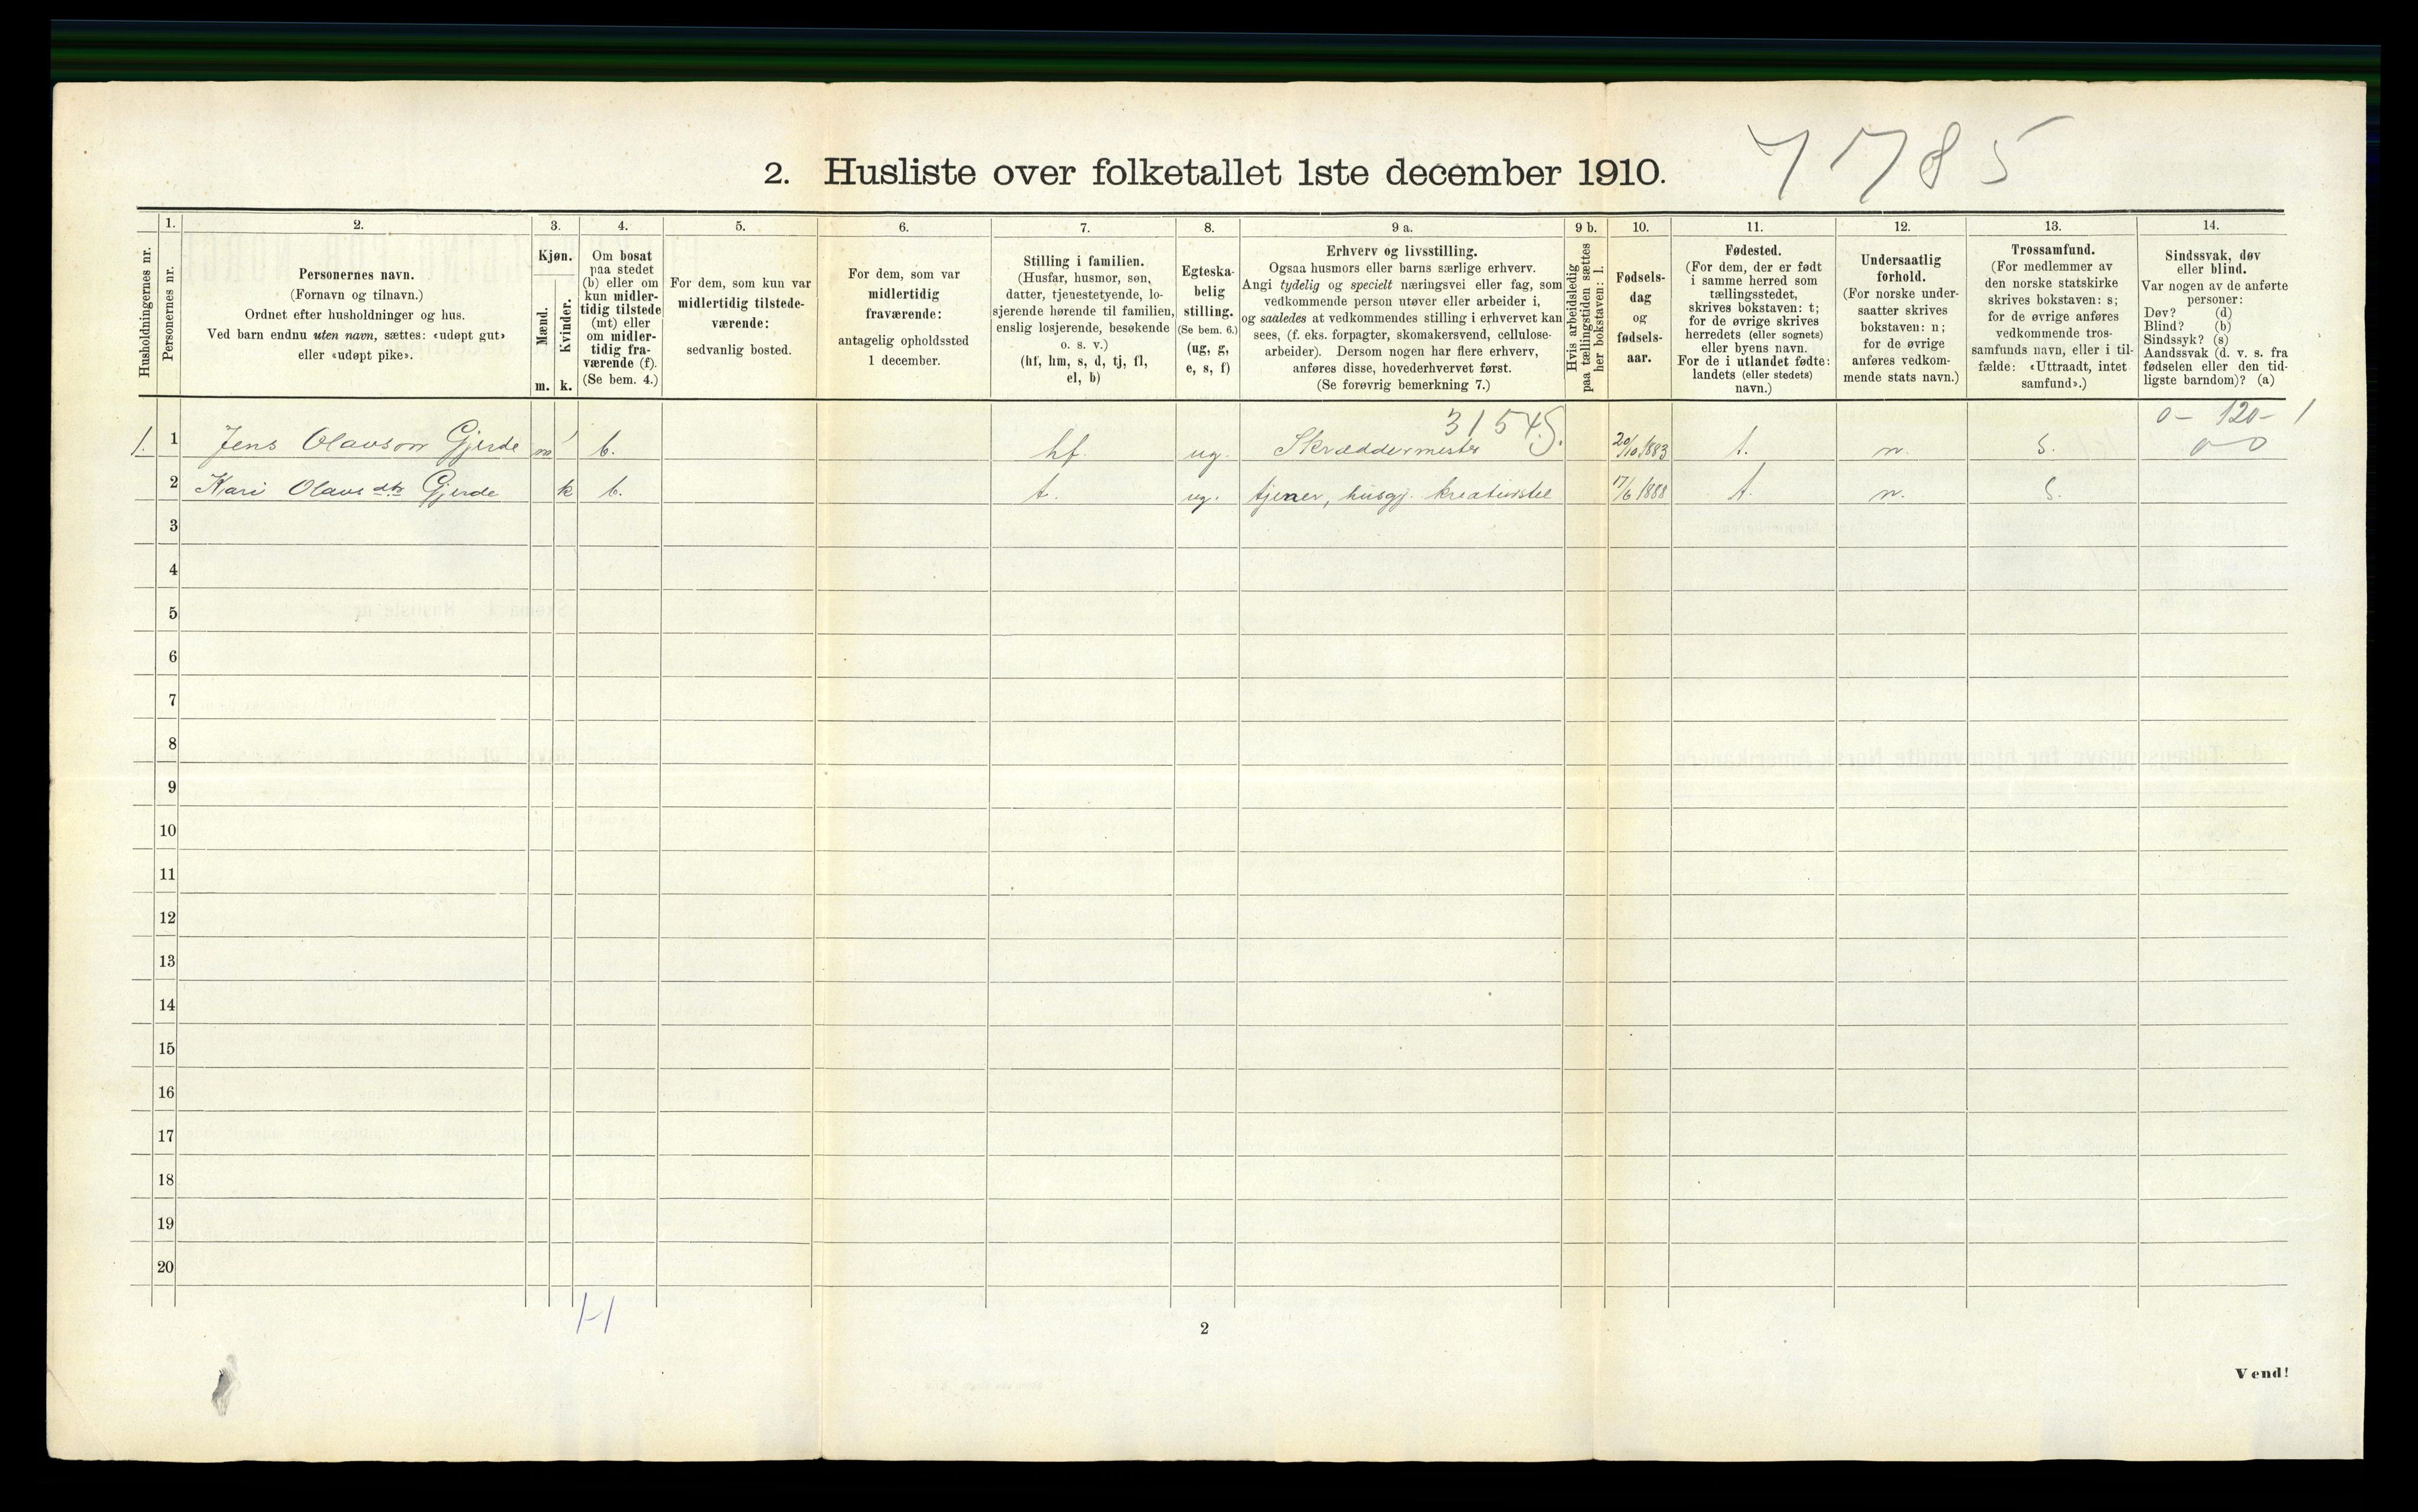 7785
2. Husliste over folketallet 1ste december 1910.
Husholdningernes nr.
1.
Personernes nr.
2.
Personernes navn.
(Fornavn og tilnavn.)
Ordnet efter husholdninger og hus.
Ved barn endnu uten navn, sættes: «udøpt gut»
eller «udøpt pike».
3.
Kjøn.
Mænd.
m.
Kvinder.
k.
4.
Om bosat
paa stedet
(b) eller om
kun midler-
tidig tilstede
(mt) eller
om midler-
tidig fra-
værende (f).
(Se bem. 4.)
5.
For dem, som kun var
midlertidig tilstede-
værende:
sedvanlig bosted.
6.
For dem, som var
midlertidig
fraværende:
antagelig opholdssted
1 december.
7.
Stilling i familien.
(Husfar, husmor, søn,
datter, tjenestetyende, lo-
sjerende hørende til familien,
enslig losjerende, besøkende
o. s. v.)
(hf, hm, s, d, tj, fl,
el, b)
8.
Egteska-
belig
stilling.
(Se bem. 6.)
(ug, g,
e, s, f)
9 a.
Erhverv og livsstilling.
Ogsaa husmors eller barns særlige erhverv.
Angi tydelig og specielt næringsvei eller fag, som
vedkommende person utøver eller arbeider i,
og saaledes at vedkommendes stilling i erhvervet kan
sees, (f. eks. forpagter, skomakersvend, cellulose-
arbeider). Dersom nogen har flere erhverv,
anføres disse, hovederhvervet først.
(Se forøvrig bemerkning 7.)
9 b.
Hvis arbeidsledig
paa tællingstiden sættes
her bokstaven: l.
10.
Fødsels-
dag
og
fødsels-
aar.
11.
Fødested.
(For dem, der er født
i samme herred som
tællingsstedet,
skrives bokstaven: t;
for de øvrige skrives
herredets (eller sognets)
eller byens navn.
For de i utlandet fødte:
landets (eller stedets)
navn.)
12.
Undersaatlig
forhold.
(For norske under-
saatter skrives
bokstaven: n;
for de øvrige
anføres vedkom-
mende stats navn.)
13.
Trossamfund.
(For medlemmer av
den norske statskirke
skrives bokstaven: s;
for de øvrige anføres
vedkommende tros-
samfunds navn, eller i til-
fælde: «Uttraadt, intet
samfund».)
14.
Sindssvak, døv
eller blind.
Var nogen av de anførte
personer:
Døv? (d)
Blind? (b)
Sindssyk? (s)
Aandssvak (d. v. s. fra
fødselen eller den tid-
ligste barndom)? (a)
3154 S. 0 - 120 - 1
1. 1 Jens Olavson Gjerde m b. hf. ug. Skræddermester 20/10 1883 t. n. s. 0 0
2 Kari Olavs dtr Gjerde k b. t. ug. tjener, husgj. kreaturstel 17/6 1888 t. n. s.
3
4
5
6
7
8
9
10
11
12
13
14
15
16
17
18
19
20
2
Vend!